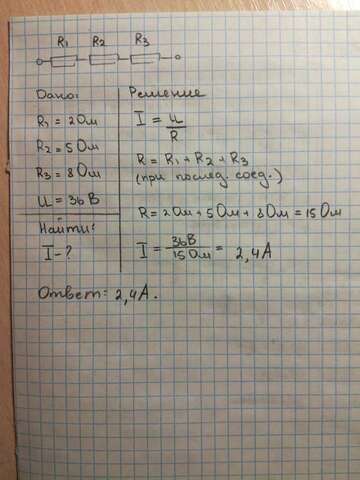 R₁ R₂ R₃
Дано:
R₁ = 2 Ом
R₂ = 5 Ом
R₃ = 8 Ом
U = 36 В
Найти:
I - ?
Решение
I = U/R
R = R₁ + R₂ + R₃
(при послед. соед.)
R = 2 Ом + 5 Ом + 8 Ом = 15 Ом
I = 36В/15 Ом = 2,4 А
Ответ: 2,4 А.